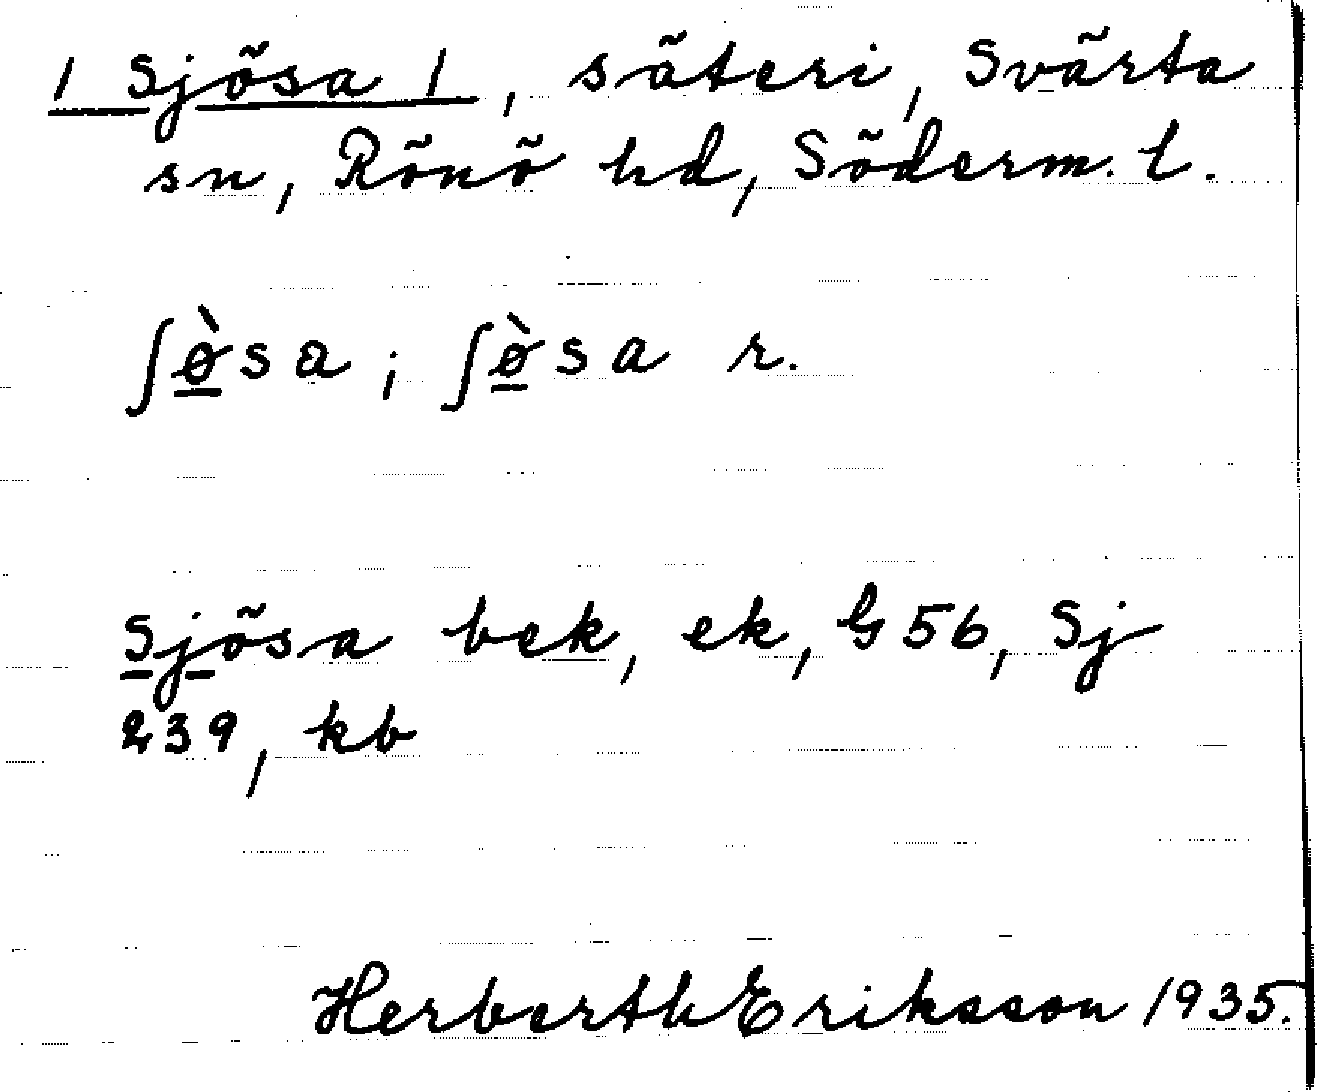 1 Sjösa 1, säteri, Svärta
sn, Rönö hd, Söderm. l.
ʃø̀sa; ʃø̀sa r.
Sjösa bek, ek, G56, Sj
239, kb
Herberth Eriksson 1935.